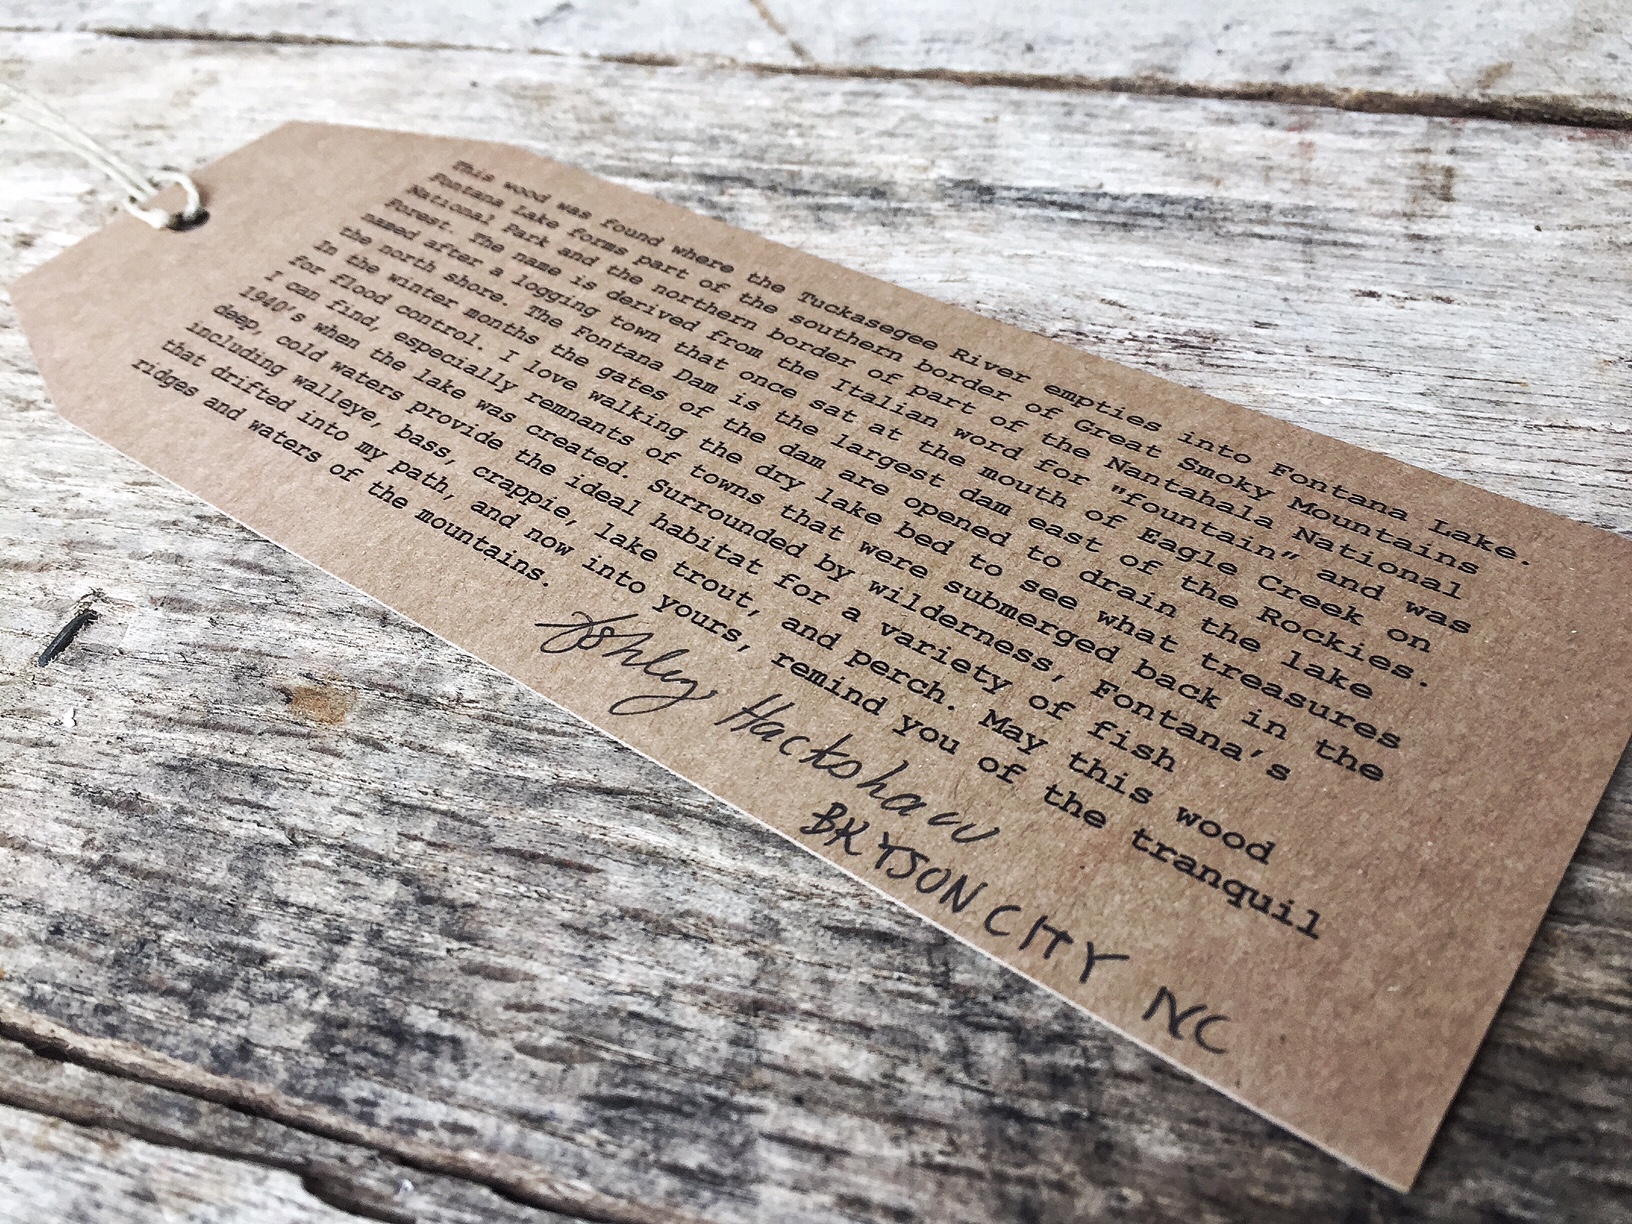 This wood was found where the Tuckasegee River empties into Fontana Lake.
Fontana Lake forms part of the southern border of Great Smoky Mountains
National Park and the northern border of part of the Nantahala National
Forest. The name is derived from the Italian word for "fountain" and was
named after a logging town that once sat at the mouth of Eagle Creek on
the north shore. The Fontana Dam is the largest dam east of the Rockies.
In the winter months the gates of the dam are opened to drain the lake
for flood control. I love walking the dry lake bed to see what treasures
I can find, especially remnants of towns that were submerged back in the
1940's when the lake was created. Surrounded by wilderness, Fontana's
deep, cold waters provide the ideal habitat for a variety of fish
including walleye, bass, crappie, lake trout, and perch. May this wood
that drifted into my path, and now into yours, remind you of the tranquil
ridges and waters of the mountains.
Ashley Hackshaw
BRYSON CITY NC